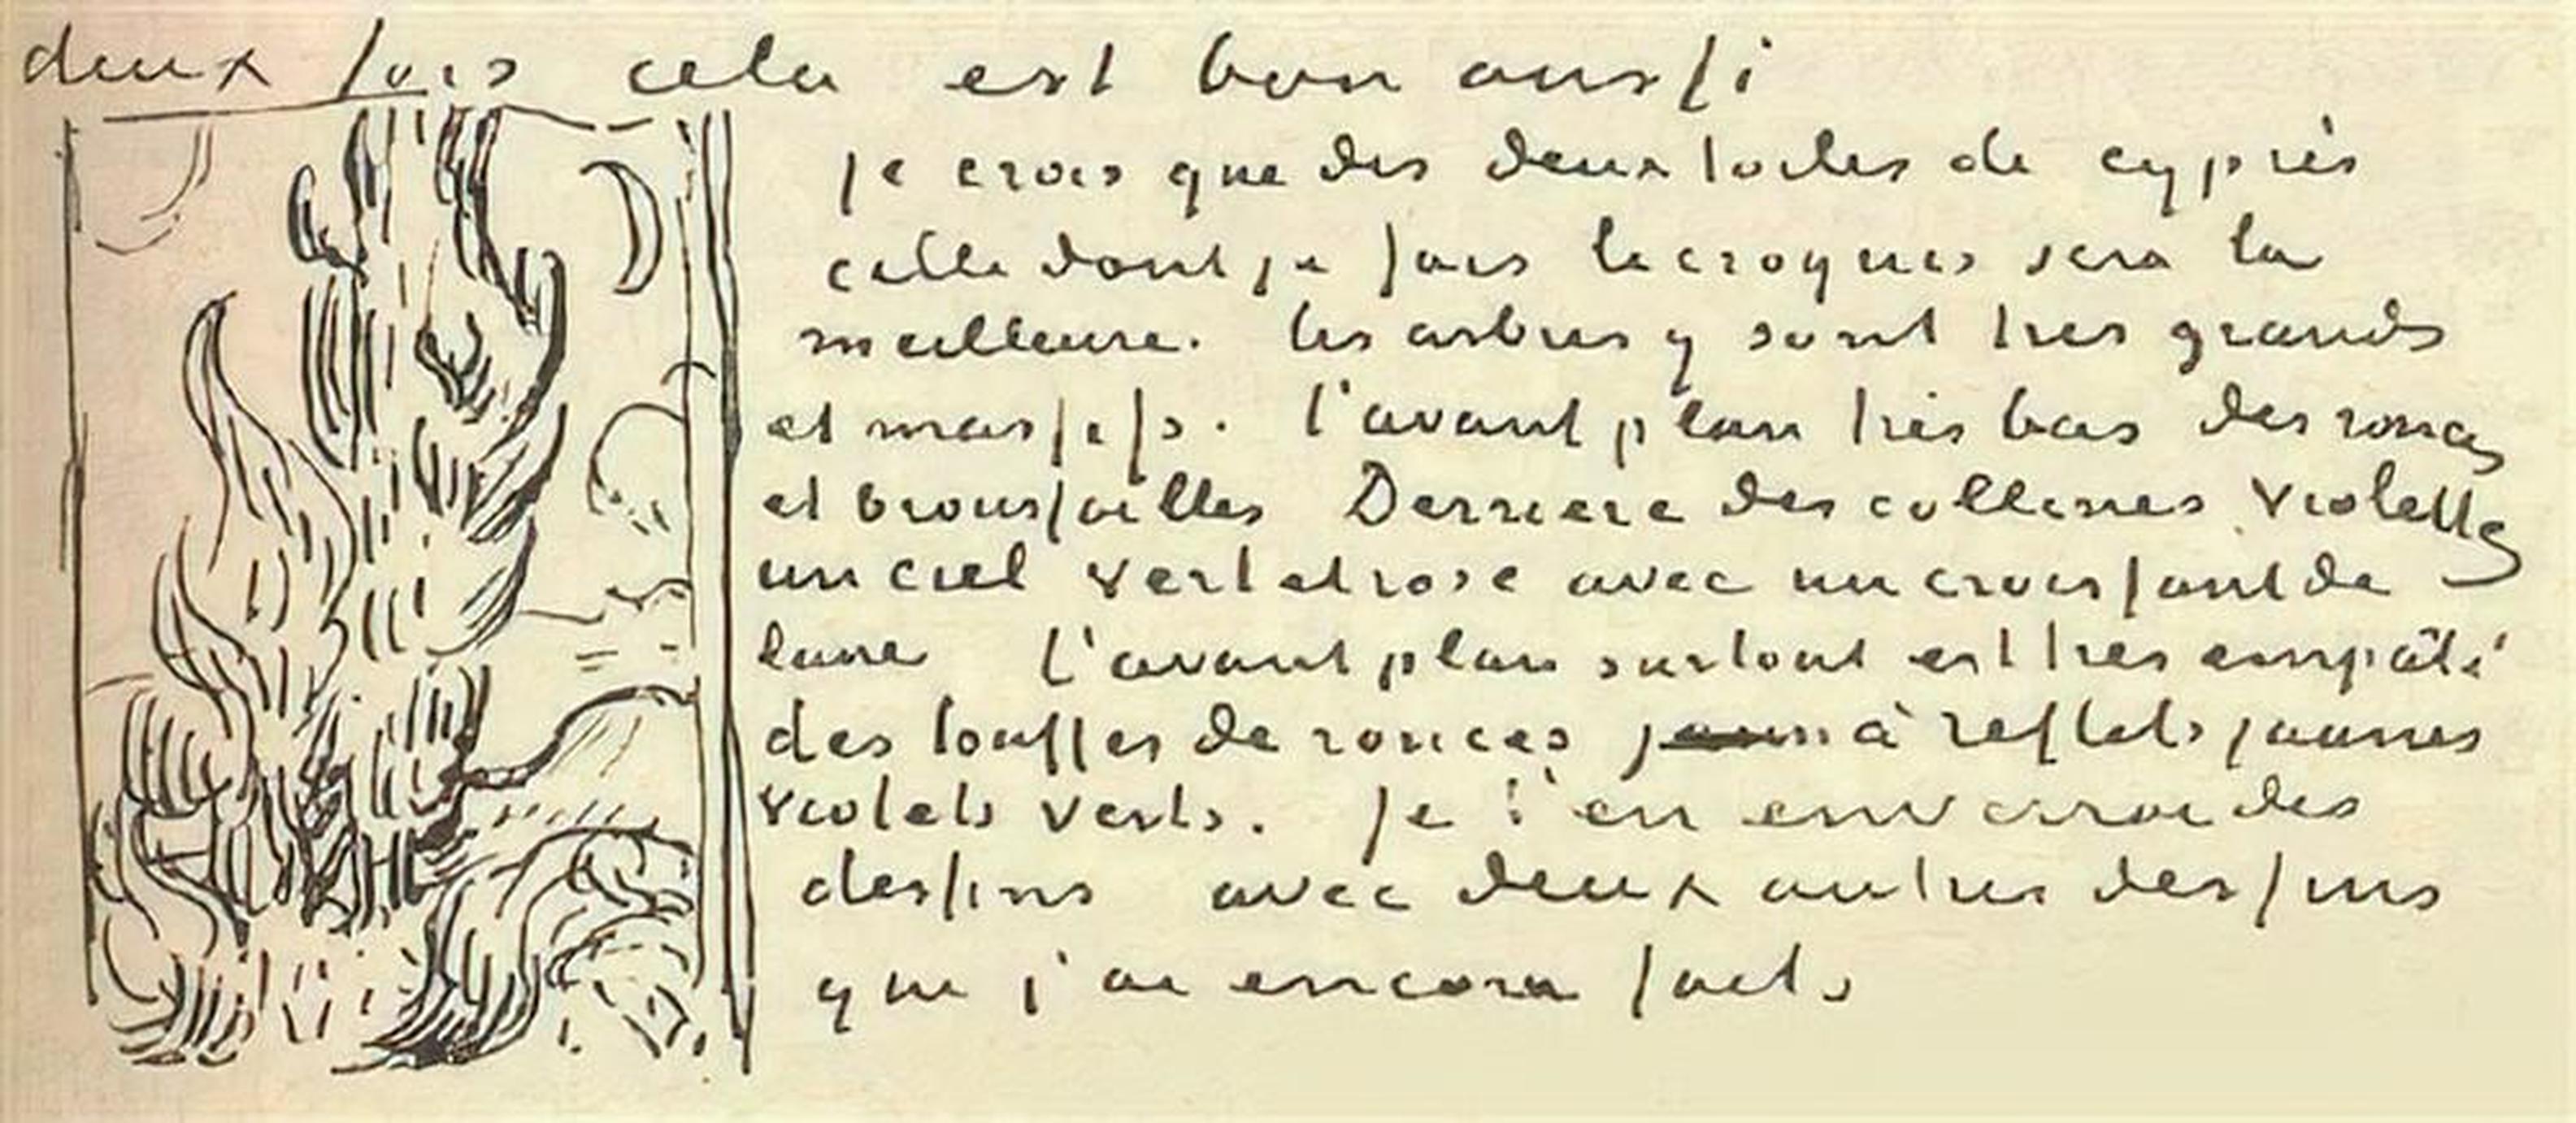 deux fois cela est bon aussi
je crois que des deux toiles de cyprès
celle dont je fais le croquis sera la
meilleure. les arbres y sont tres grands
et massifs. l'avant plan très bas des ronces
et broussailles Derriere des collines violettes
un ciel vert et rose avec un croissant de
lune L'avant plan surtout est tres empâté
des touffes de ronces à reflets jaunes
violets verts. Je t'en enverrai des
dessins avec deux autres dessins
que j'ai encore faits